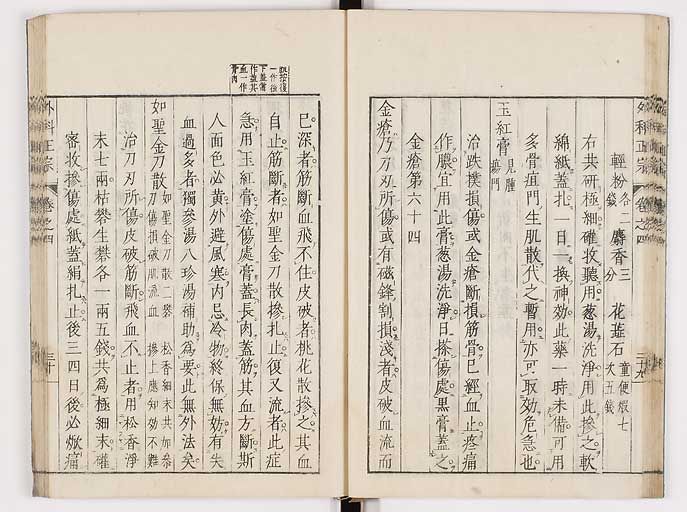 外科正宗 卷之四 三十九
輕粉 各二錢 麝香 三分 花蕋石 童便煅七次五錢
右共研極細礶收聽用葱湯洗淨用此摻之軟
綿紙蓋扎一日一換神効此藥一時未備可用
多骨疽門生肌散代之暫用亦可取効危急也
玉紅膏 見腫瘍門
治跌撲損傷或金瘡斷損筋骨已經血止疼痛
作膿宜用此膏葱湯洗淨日搽傷處黑膏蓋之
金瘡第六十四
金瘡乃刀刃所傷或有磁鋒割損淺者皮破血流而
已深者筋斷血飛不住皮破者桃花散摻之其血
自止筋斷者如聖金刀散摻扎止復又流者此症
急用玉紅膏塗傷處膏蓋長肉蓋筋其血方斷斯
人面色必黃外避風寒內忌冷物終保無効有失
血過多者獨參湯八珍湯補助爲要此無外法矣
如聖金刀散 如聖金刀散二礬 松香細末共如叅 刀傷損破肌流血 摻上應知効不難
治刀刃所傷皮破筋斷飛血不止者用松香淨
末七兩枯礬生礬各一兩五錢共爲極細末礶
密收摻傷處紙蓋絹扎止後三四日後必焮痛
外科正宗 卷之四 三十